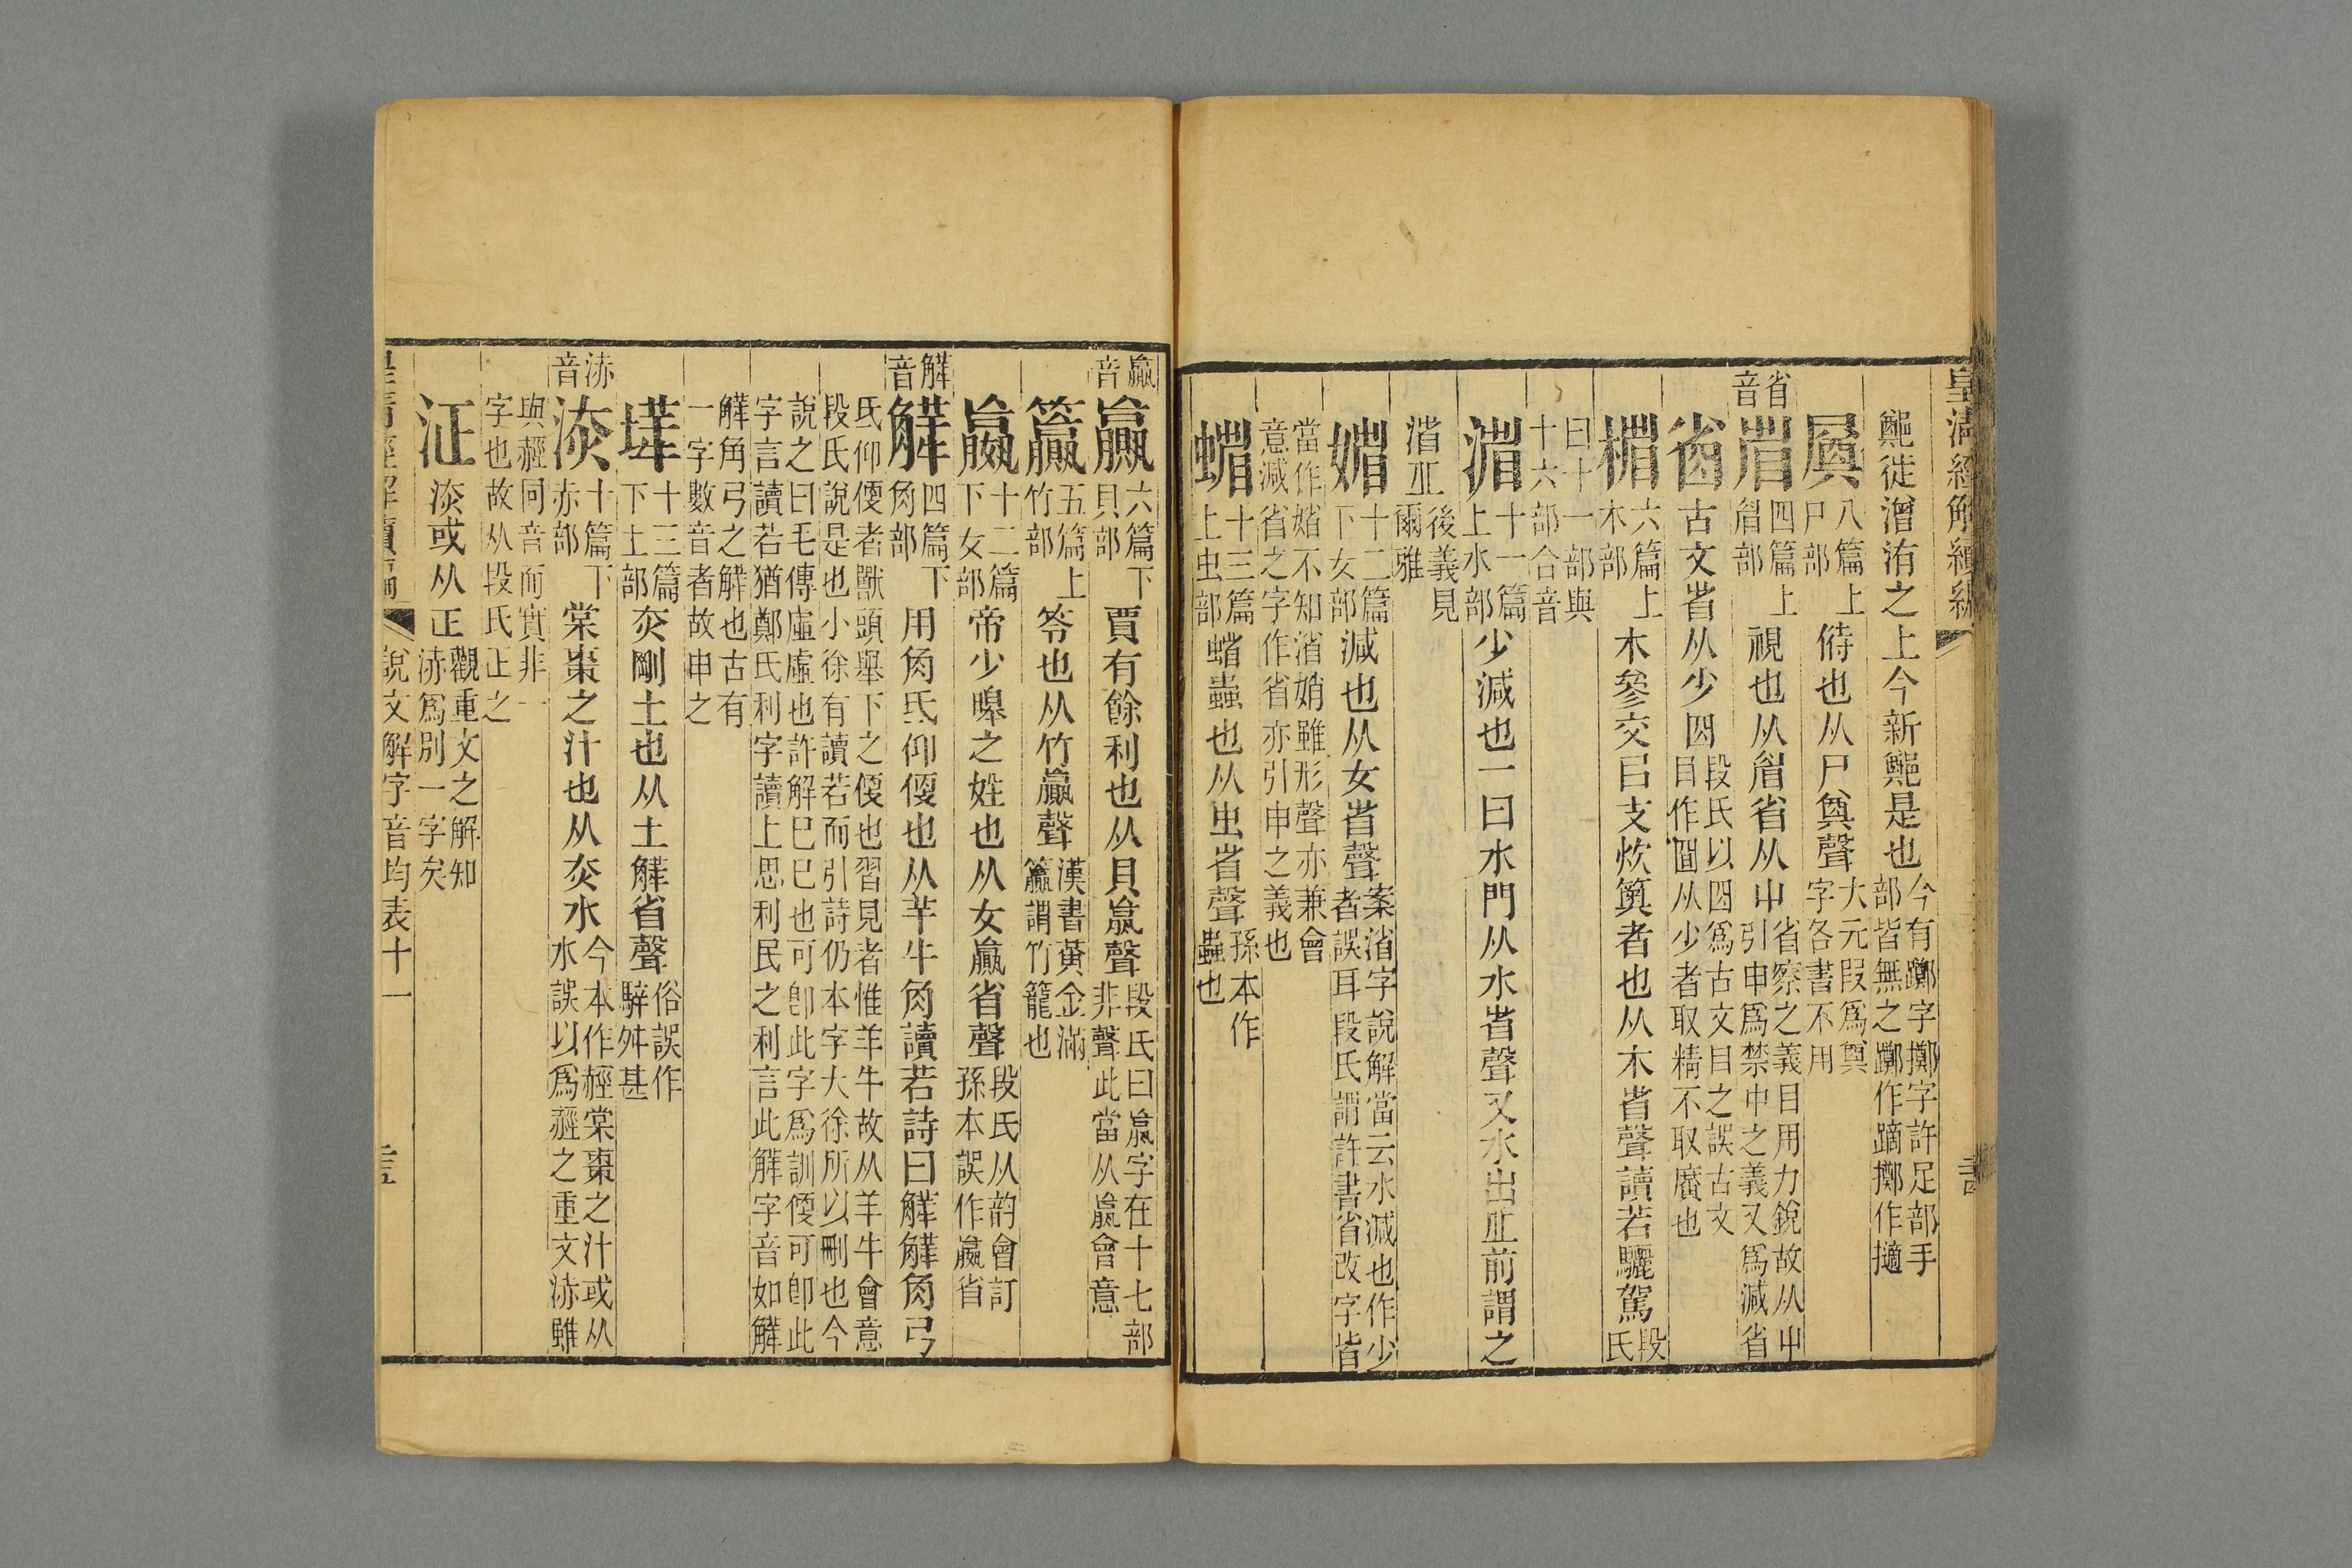 皇清經解續編
鄭徙澘洧之上今新鄭是也今有躑字擲字許足部手部皆無之躑作蹢擲作擿
屒八篇上尸部偫也从尸奠聲大元叚爲奠字各書不用
省音
㗂四篇上眉部視也从眉省从屮省察之義目用力銳故从屮引申爲禁中之義又爲減省
𡮐古文省从少囧段氏以囧爲古文目之誤古文目作囼从少者取精不取廣也
楈六篇上木部木參交㠯支炊䉛者也从木省聲讀若驪駕段氏
曰十一部與十六部合音
渻十一篇上水部少減也一曰水門从水省聲又水出丘前謂之
渻丘後義見爾雅
媘十二篇下女部減也从女省聲案渻字說解當云水減也作少者誤耳段氏謂許書省改字皆
當作媘不知渻媘雖形聲亦兼會意減省之字作省亦引申之義也
蝔十三篇上虫部蝔蟲也从虫省聲孫本作蟲也
贏音
贏六篇下貝部賈有餘利也从貝𣎆聲段氏曰𣎆字在十七部非聲此當从𣎆會意
籯五篇上竹部笭也从竹贏聲漢書黃金滿籯謂竹籠也
嬴十二篇下女部帝少暤之姓也从女贏省聲段氏从韵會訂孫本誤作羸省
觲音
觲四篇下角部用角氐仰㑮也从羊牛角讀若詩曰觲觲角弓
氐仰㑮者獸頭舉下之㑮也習見者惟羊牛故从羊牛會意段氏說是也小徐有讀若而引詩仍本字大徐所以刪也今
說之曰毛傳虛虛也許解巳巳也可卽此字爲訓㑮可卽此字言讀若猶鄭氏利字讀上思利民之利言此觲字音如觲
觲角弓之觲也古有一字數音者故申之
垶十三篇下土部赤剛土也从土觲省聲俗誤作騂舛甚
浾音
浾十篇下赤部棠棗之汁也从赤水今本作䞓棠棗之汁或从水誤以爲䞓之重文浾雖
與䞓同音而實非一字也故从段氏正之
泟浾或从正觀重文之解知浾爲別一字矣
皇清經解續編 說文解字音均表十一